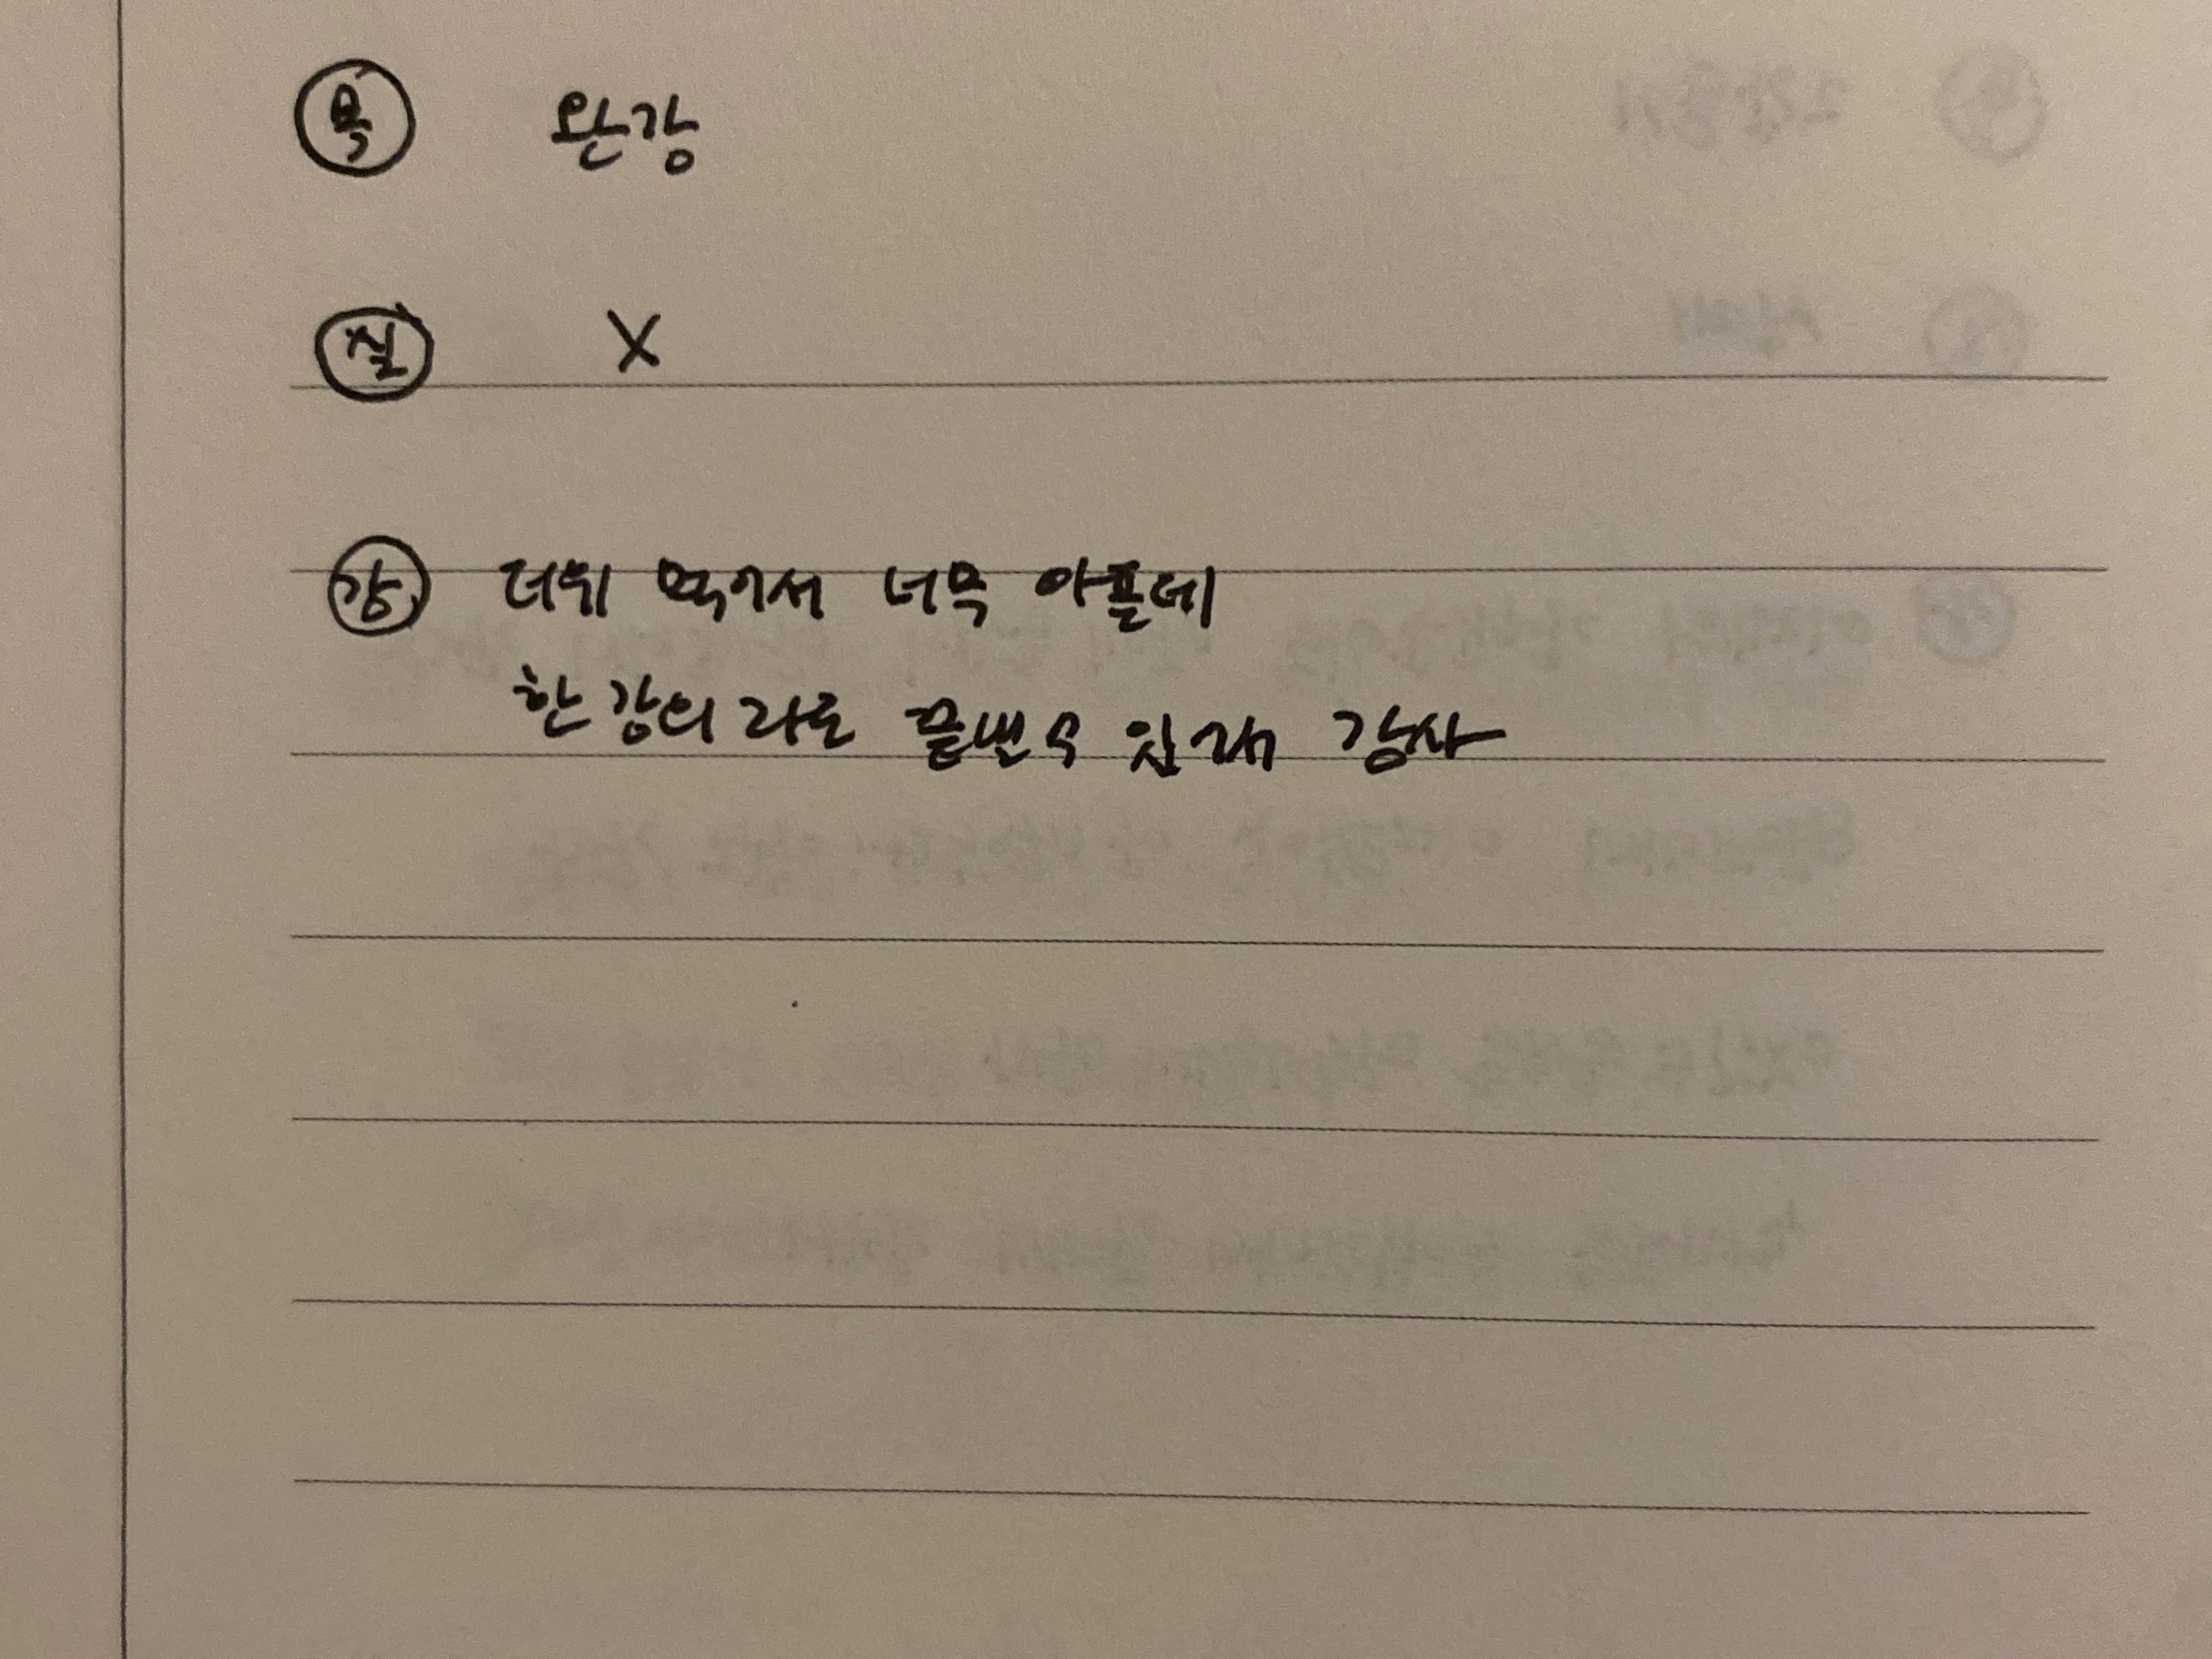 목 완강
실 X
감 더위 먹어서 너무 아픈데
한 강의 라도 끝낼 수 있고 감사